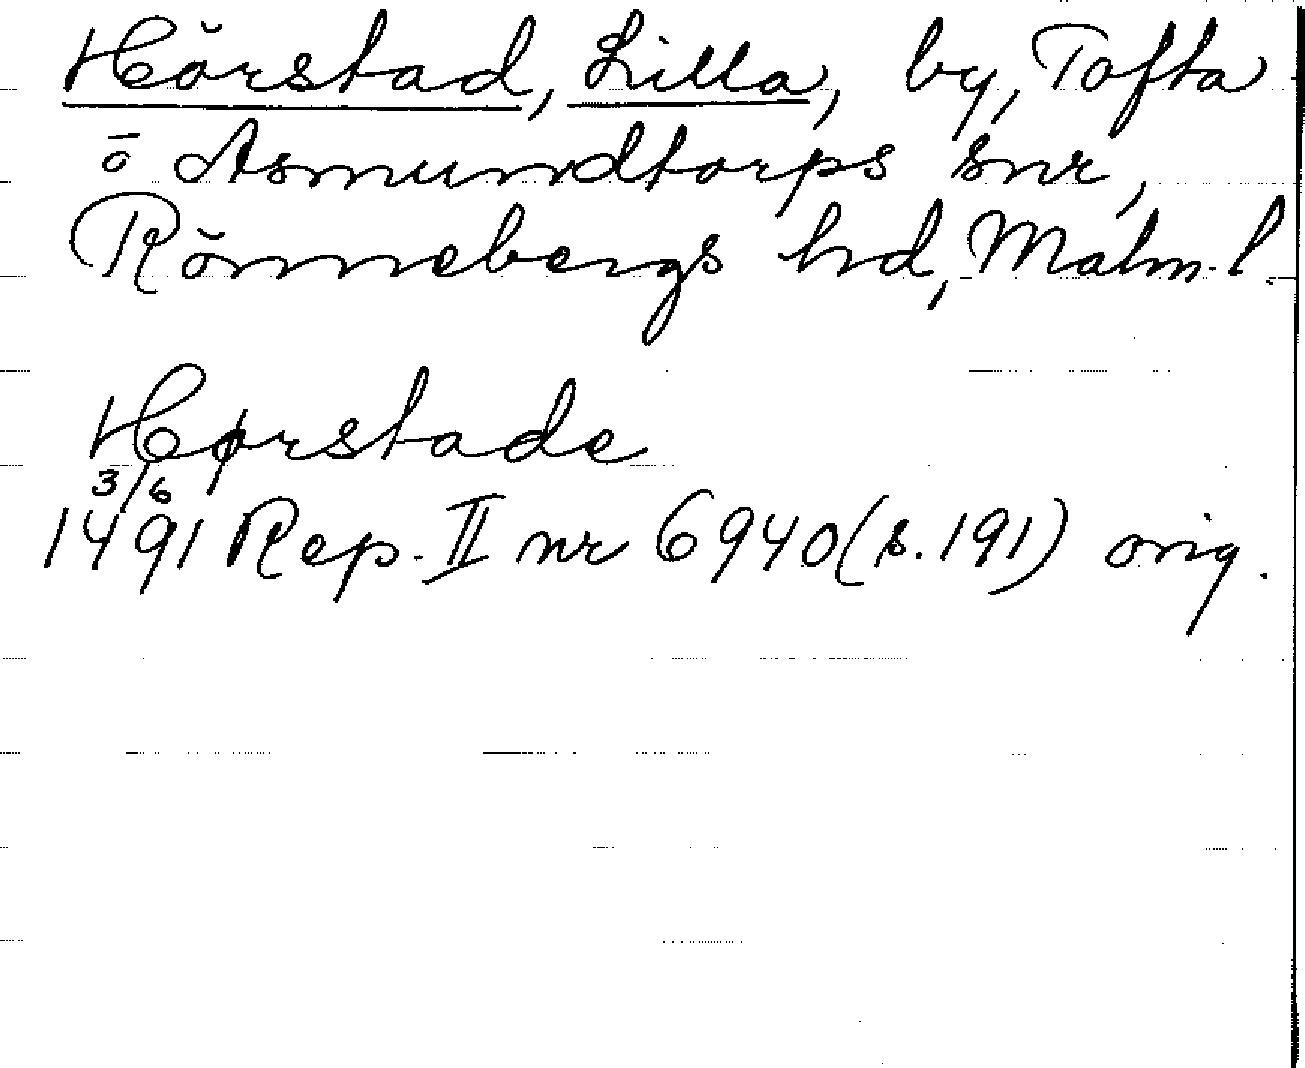 Hörstad, Lilla, by, Tofta
ö Asmundtorps snr,
Rönnebergs hd, Malm. l.
Hørstade
3/6
1491 Rep. II nr 6940 (s. 191) orig.